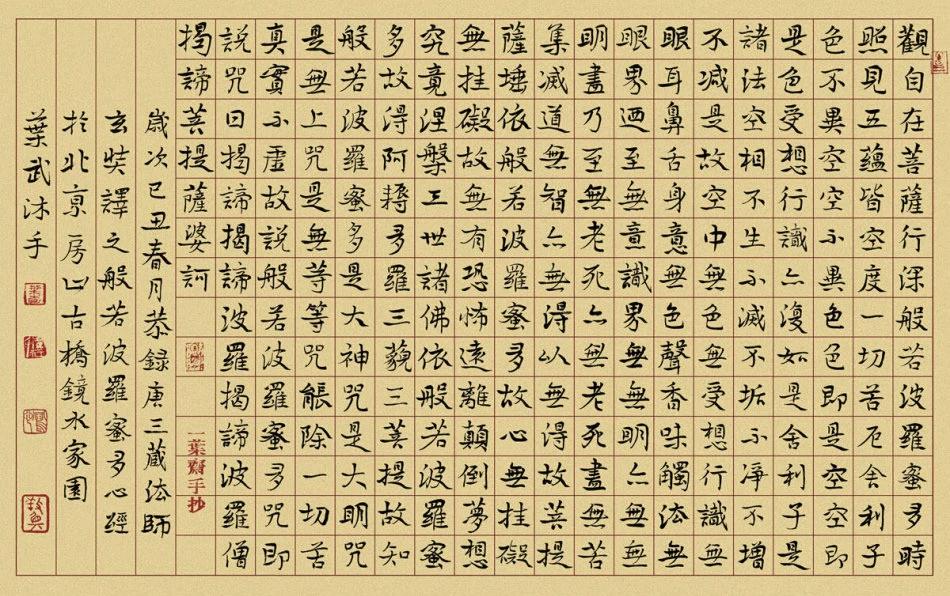 觀自在菩薩行深般若波羅蜜多時
照見五蘊皆空度一切苦厄舍利子
色不異空空不異色色即是空空即
是色受想行識亦復如是舍利子是
諸法空相不生不滅不垢不淨不增
不減是故空中無色無受想行識無
眼耳鼻舌身意無色聲香味觸法無
眼界迺至無意識界無無明亦無無
明盡乃至無老死亦無老死盡無苦
集滅道無智亦無得以無得故菩提
薩埵依般若波羅蜜多故心無挂礙
無挂礙故無有恐怖遠離顛倒夢想
究竟涅槃三世諸佛依般若波羅蜜
多故得阿耨多羅三藐三菩提故知
般若波羅蜜多是大神咒是大明咒
是無上咒是無等等咒能除一切苦
真實不虛故說般若波羅蜜多咒即
說咒曰揭諦揭諦波羅揭諦波羅僧
揭諦菩提薩婆訶
一葉齋手抄
歲次己丑春月恭錄唐三藏法師
玄奘譯之般若波羅蜜多心經
於北京房山古橋鏡水家園
葉武沐手